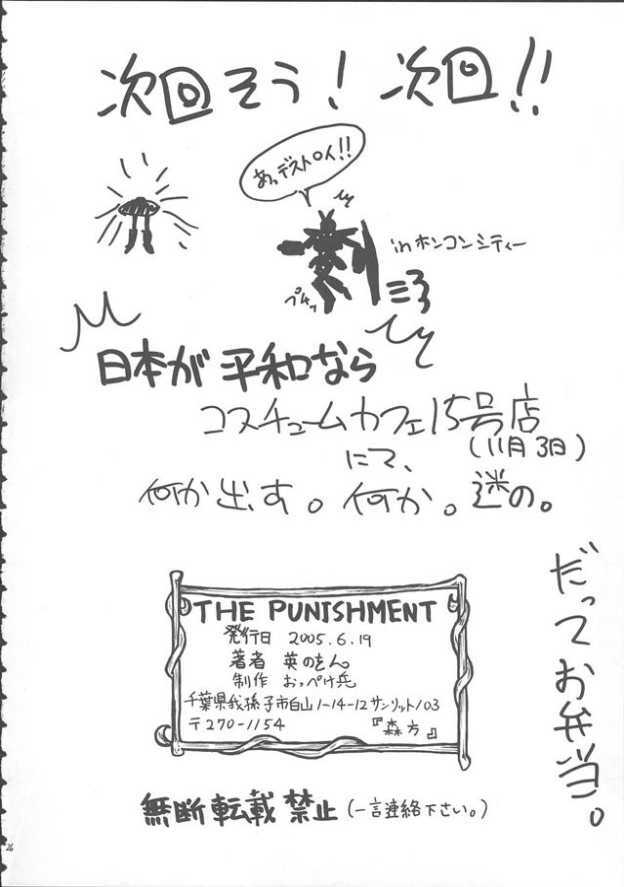 次回そう！次回!!
あっデストロイ!!
inホンコンシティー
プチッ
日本が平和なら
コスチュームカフェ15号店
(11月3日)
にて、
何か出す。何か。迷の。
だってお弁当。
THE PUNISHMENT
発行日 2005.6.19
著者 英のもん。
制作 おっぺけ兵
千葉県我孫子市白山1-14-12サンリット103
〒270-1154 『森方』
無断転載禁止(一言連絡下さい。)
26